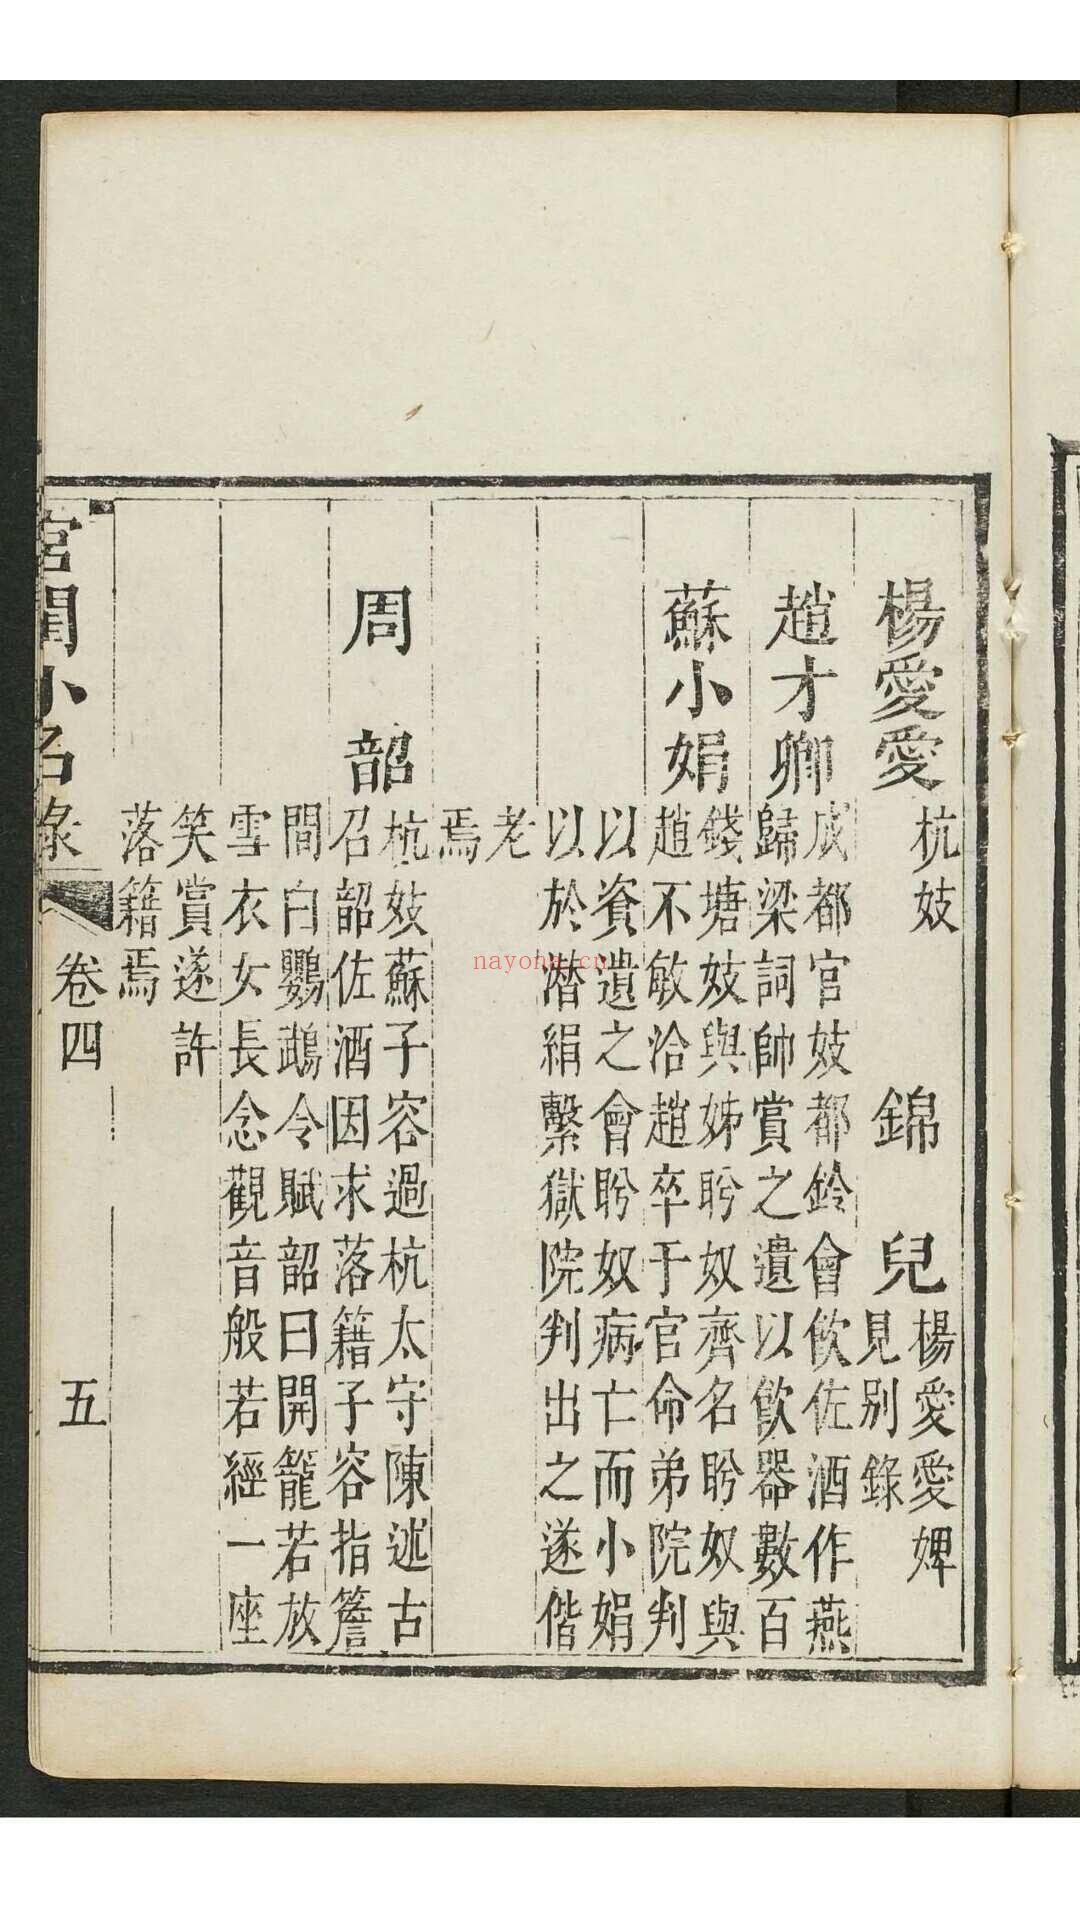 楊愛愛
杭妓
錦兒
楊愛愛婢
見別錄
趙才卿
成都官妓都鈴會飲佐酒作燕
歸梁詞帥賞之遺以飲器數百
蘇小娟
錢塘妓與姊盻奴齊名盻奴與
趙不敏洽趙卒于官命弟院判
以資遺之會盻奴病亡而小娟
以於潛絹繫獄院判出之遂偕
老
焉
周韶
杭妓蘇子容過杭太守陳述古
召韶佐酒因求落籍子容指簷
間白鸚鵡令賦韶曰開籠若放
雪衣女長念觀音般若經一座
笑賞遂許
落籍焉
宮閨小名錄
卷四
五
nayona.cn